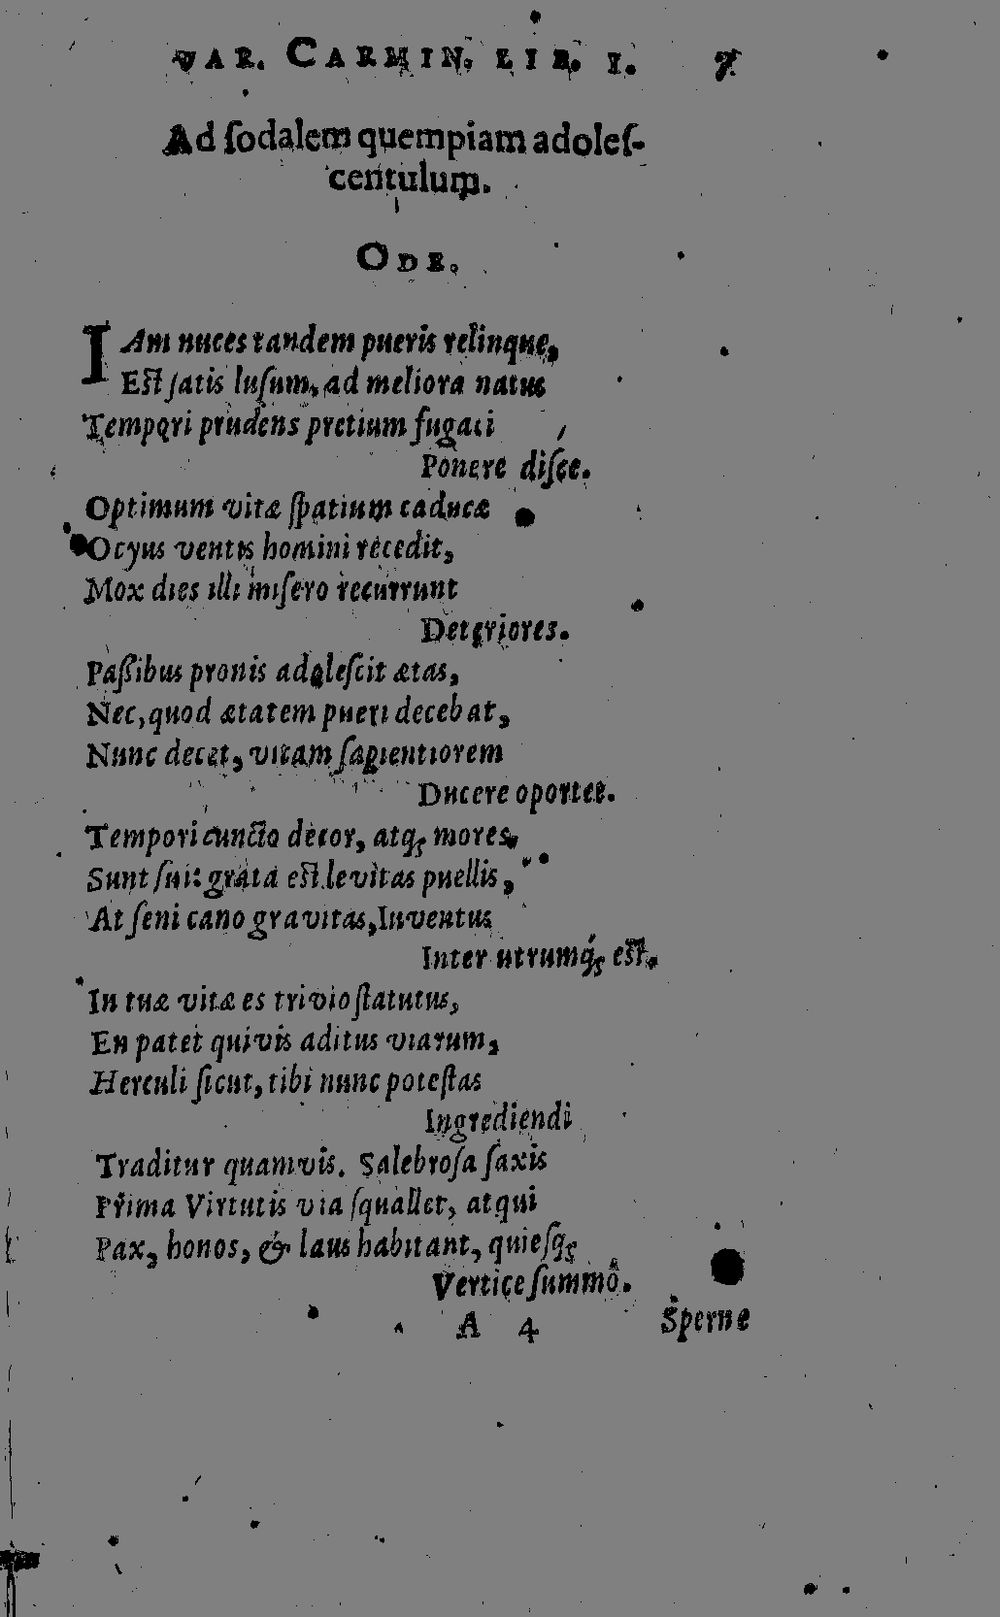 VAR. CARMIN. LIB. I. 7
Ad ſodalem quempiam adoleſ-
centulum.
ODE.
IAm nuces tandem pueris relinque,
Eſt ſatis luſum, ad meliora natus
Tempori prudens pretium fugaci
Ponere diſce.
Optimum vitæ ſpatium caducæ
Ocyus ventis homini recedit,
Mox dies illi miſero recurrunt
Deteriores.
Paſsibus pronis adoleſcit ætas,
Nec, quod ætatem pueri decebat,
Nunc decet, vitam ſapientiorem
Ducere oportet.
Tempori cuncto decor, atq; mores,
Sunt ſui: grata eſt levitas puellis,
At ſeni cano gravitas, Iuventus
Inter utrumq́; eſt.
In tuæ vitæ es trivio ſtatutus,
En patet quivis aditus viarum,
Herculi ſicut, tibi nunc poteſtas
Ingrediendi
Traditur quamvis. Salebroſa ſaxis
Prima Virtutis via ſquallet, atqui
Pax, honos, & laus habitant, quieſq;
Vertice ſummô.
A 4 Sperne